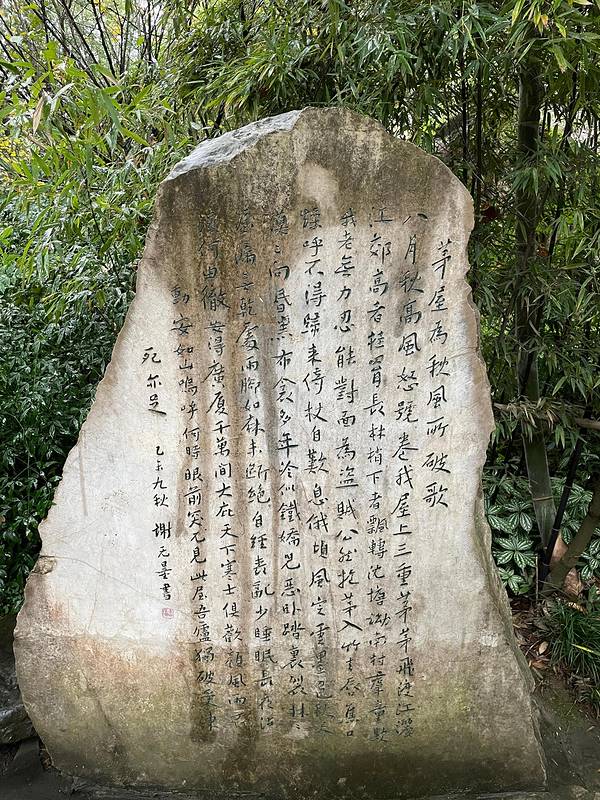 茅屋為秋風所破歌
八月秋高風怒號卷我屋上三重茅茅飛渡江灑
江郊高者挂罥長林梢下者飄轉沈塘坳南村群童欺
我老無力忍能對面為盜賊公然抱茅入竹去唇焦口
燥呼不得歸來倚杖自歎息俄頃風定雲墨色秋天
漠〻向昏黑布衾多年冷似鐵嬌兒惡臥踏裏裂牀〻
屋漏無乾處雨腳如麻未斷絕自經喪亂少睡眠長夜沾
濕何由徹安得廣廈千萬間大庇天下寒士俱歡顏風雨不
動安如山嗚呼何時眼前突兀見此屋吾廬獨破受凍
死亦足
乙未九秋 謝无量書